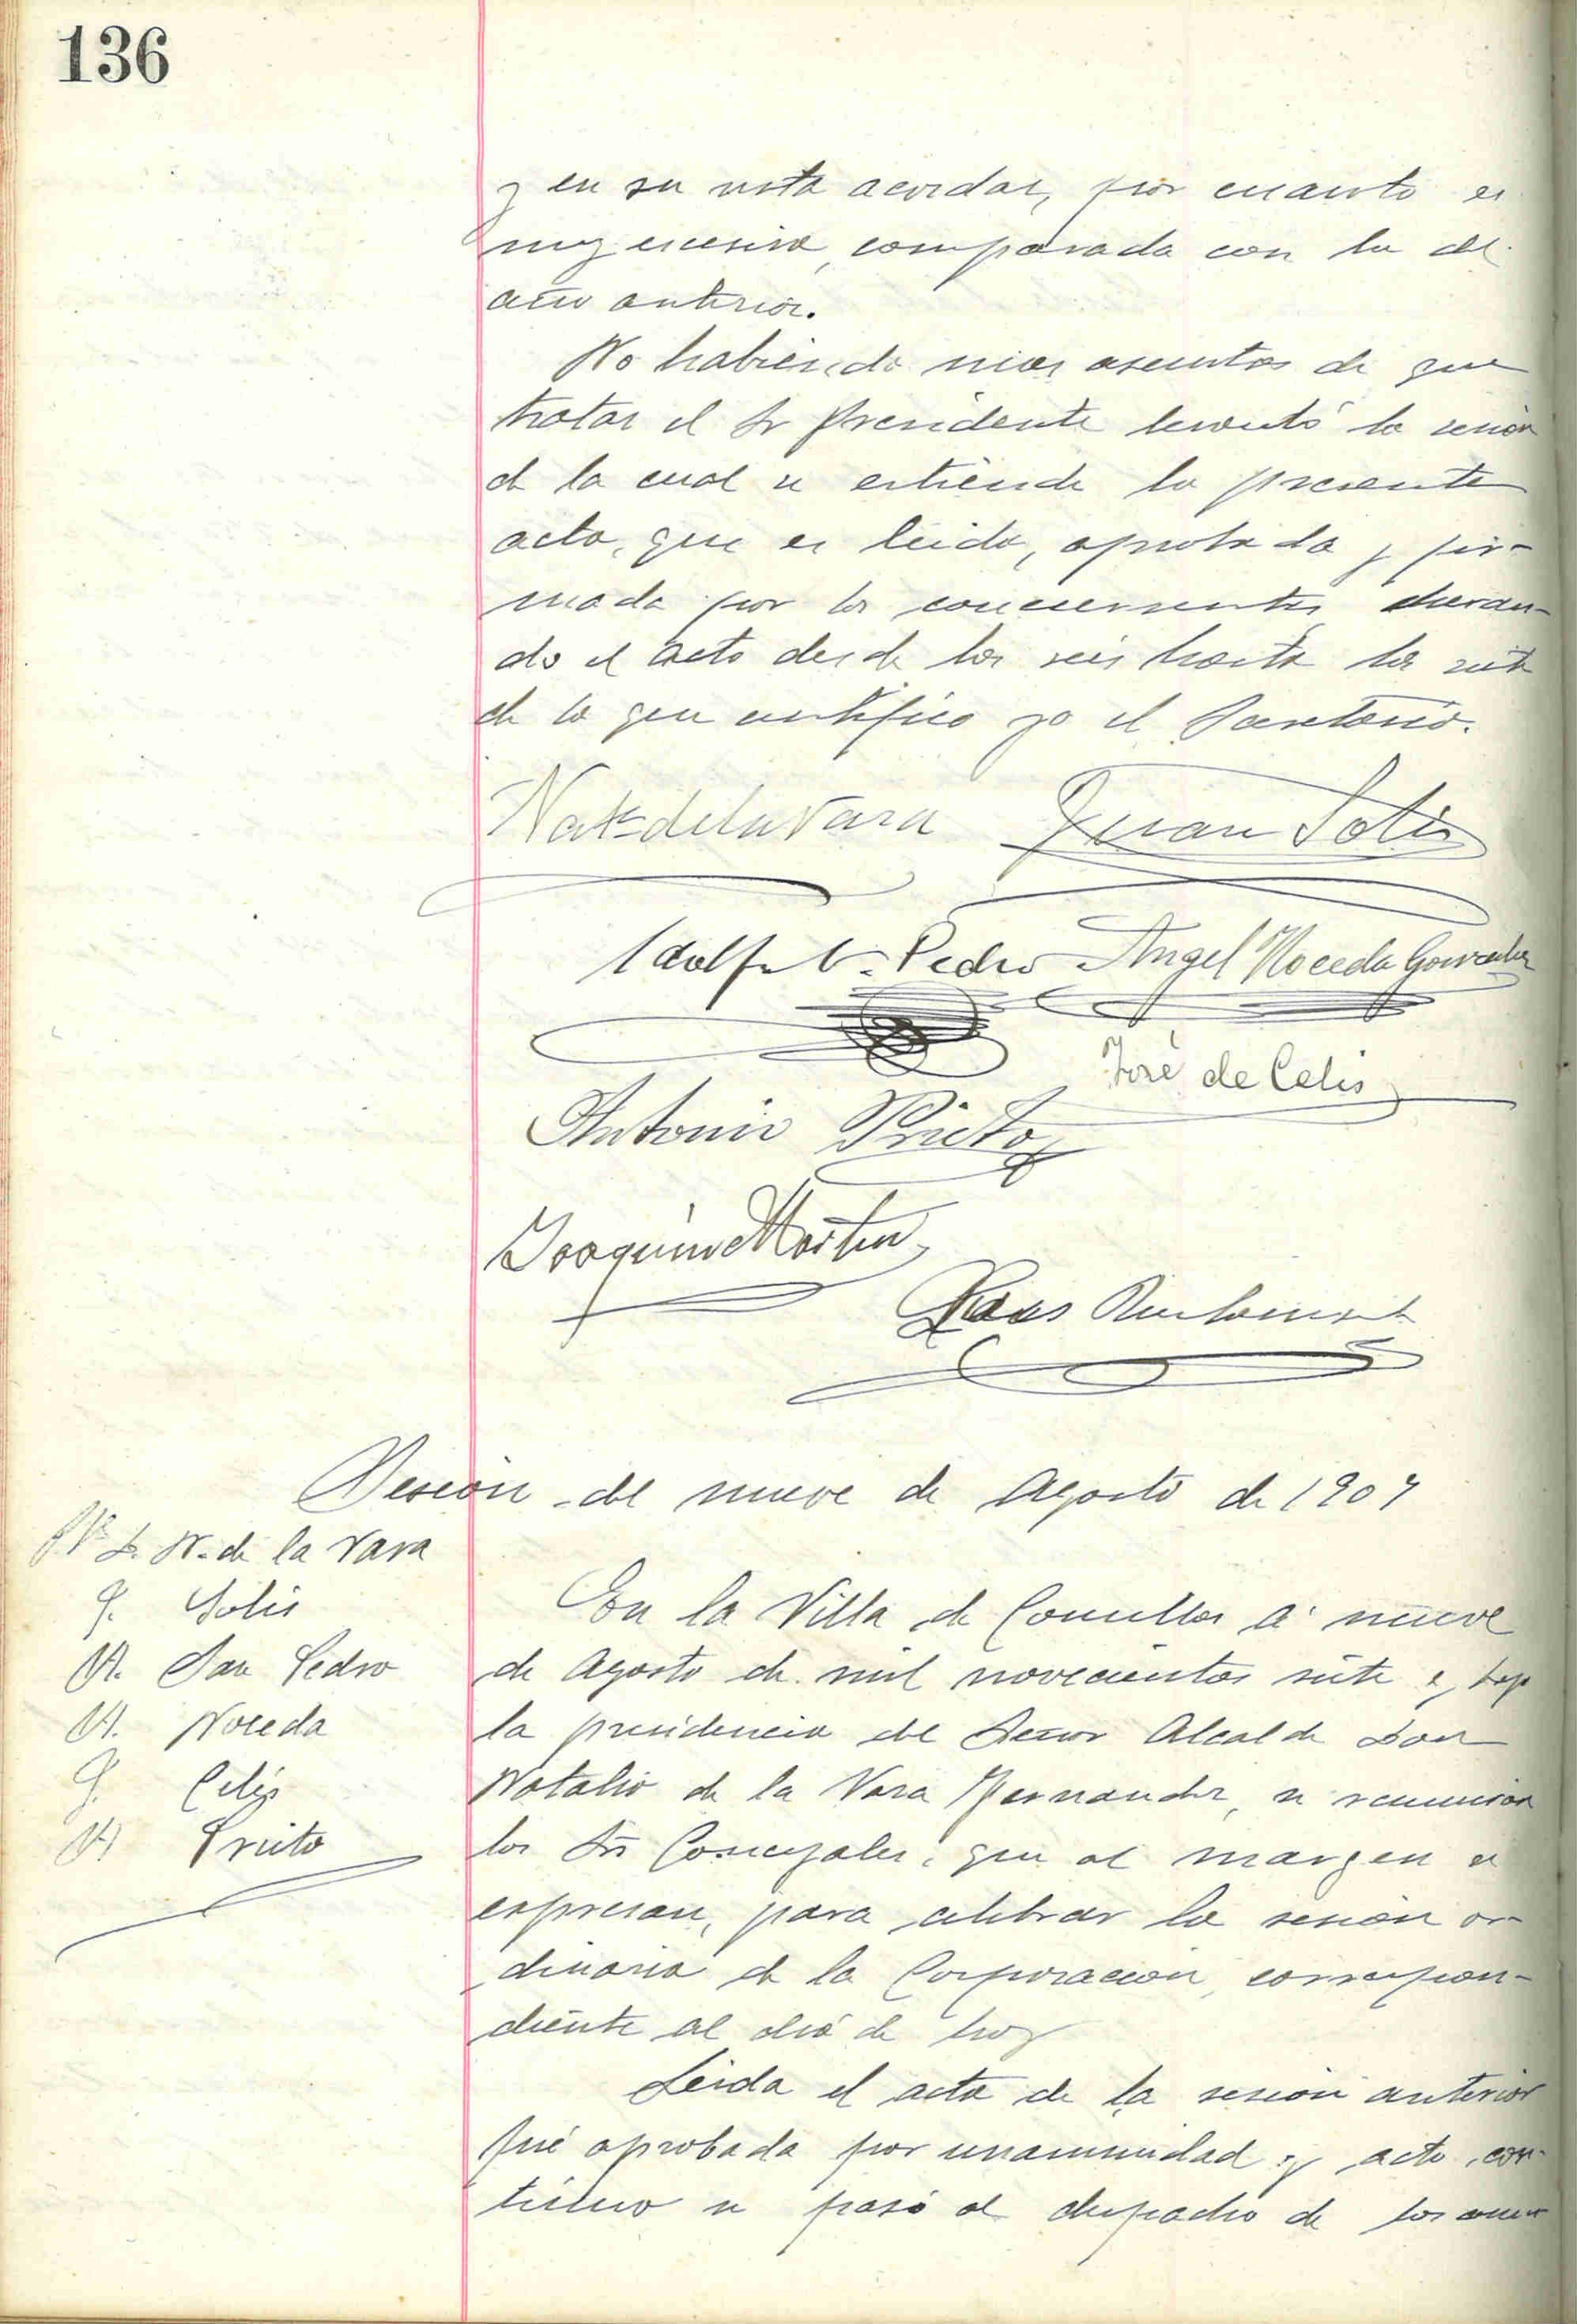 136
y en su vista acordar, por cuanto es
muy excesiva, comparada con la del
año anterior.
No habiendo mas asuntos de que
tratar el Sr Presidente levantó la sesión
de la cual se extiende la presente
acta, que es leida, aprobada y fir-
mada por los concurrentes, duran-
do el acto desde las seis hasta las siete
de lo que certifico yo el Secretario.
Nat. de la Vara Juan Solis
Adolfo S. Pedro Angel Noceda Gonzalez
José de Celis
Antonio Prieto
Joaquin Martin
Sesión del nueve de Agosto de 1907
D. N. de la Vara
J. Solis
A. San Pedro
A. Noceda
J. Celis
A. Prieto
En la Villa de Comillas á nueve
de Agosto de mil novecientos siete y bajo
la presidencia del Señor Alcalde Don
Natalio de la Vara Fernandez, se reunieron
los Srs Concejales, que al margen se
expresan, para celebrar la sesión or-
dinaria de la Corporación, correspon-
diente al dia de hoy
Leida el acta de la sesión anterior
fué aprobada por unanimidad y acto con-
tinuo se pasó al despacho de los asun